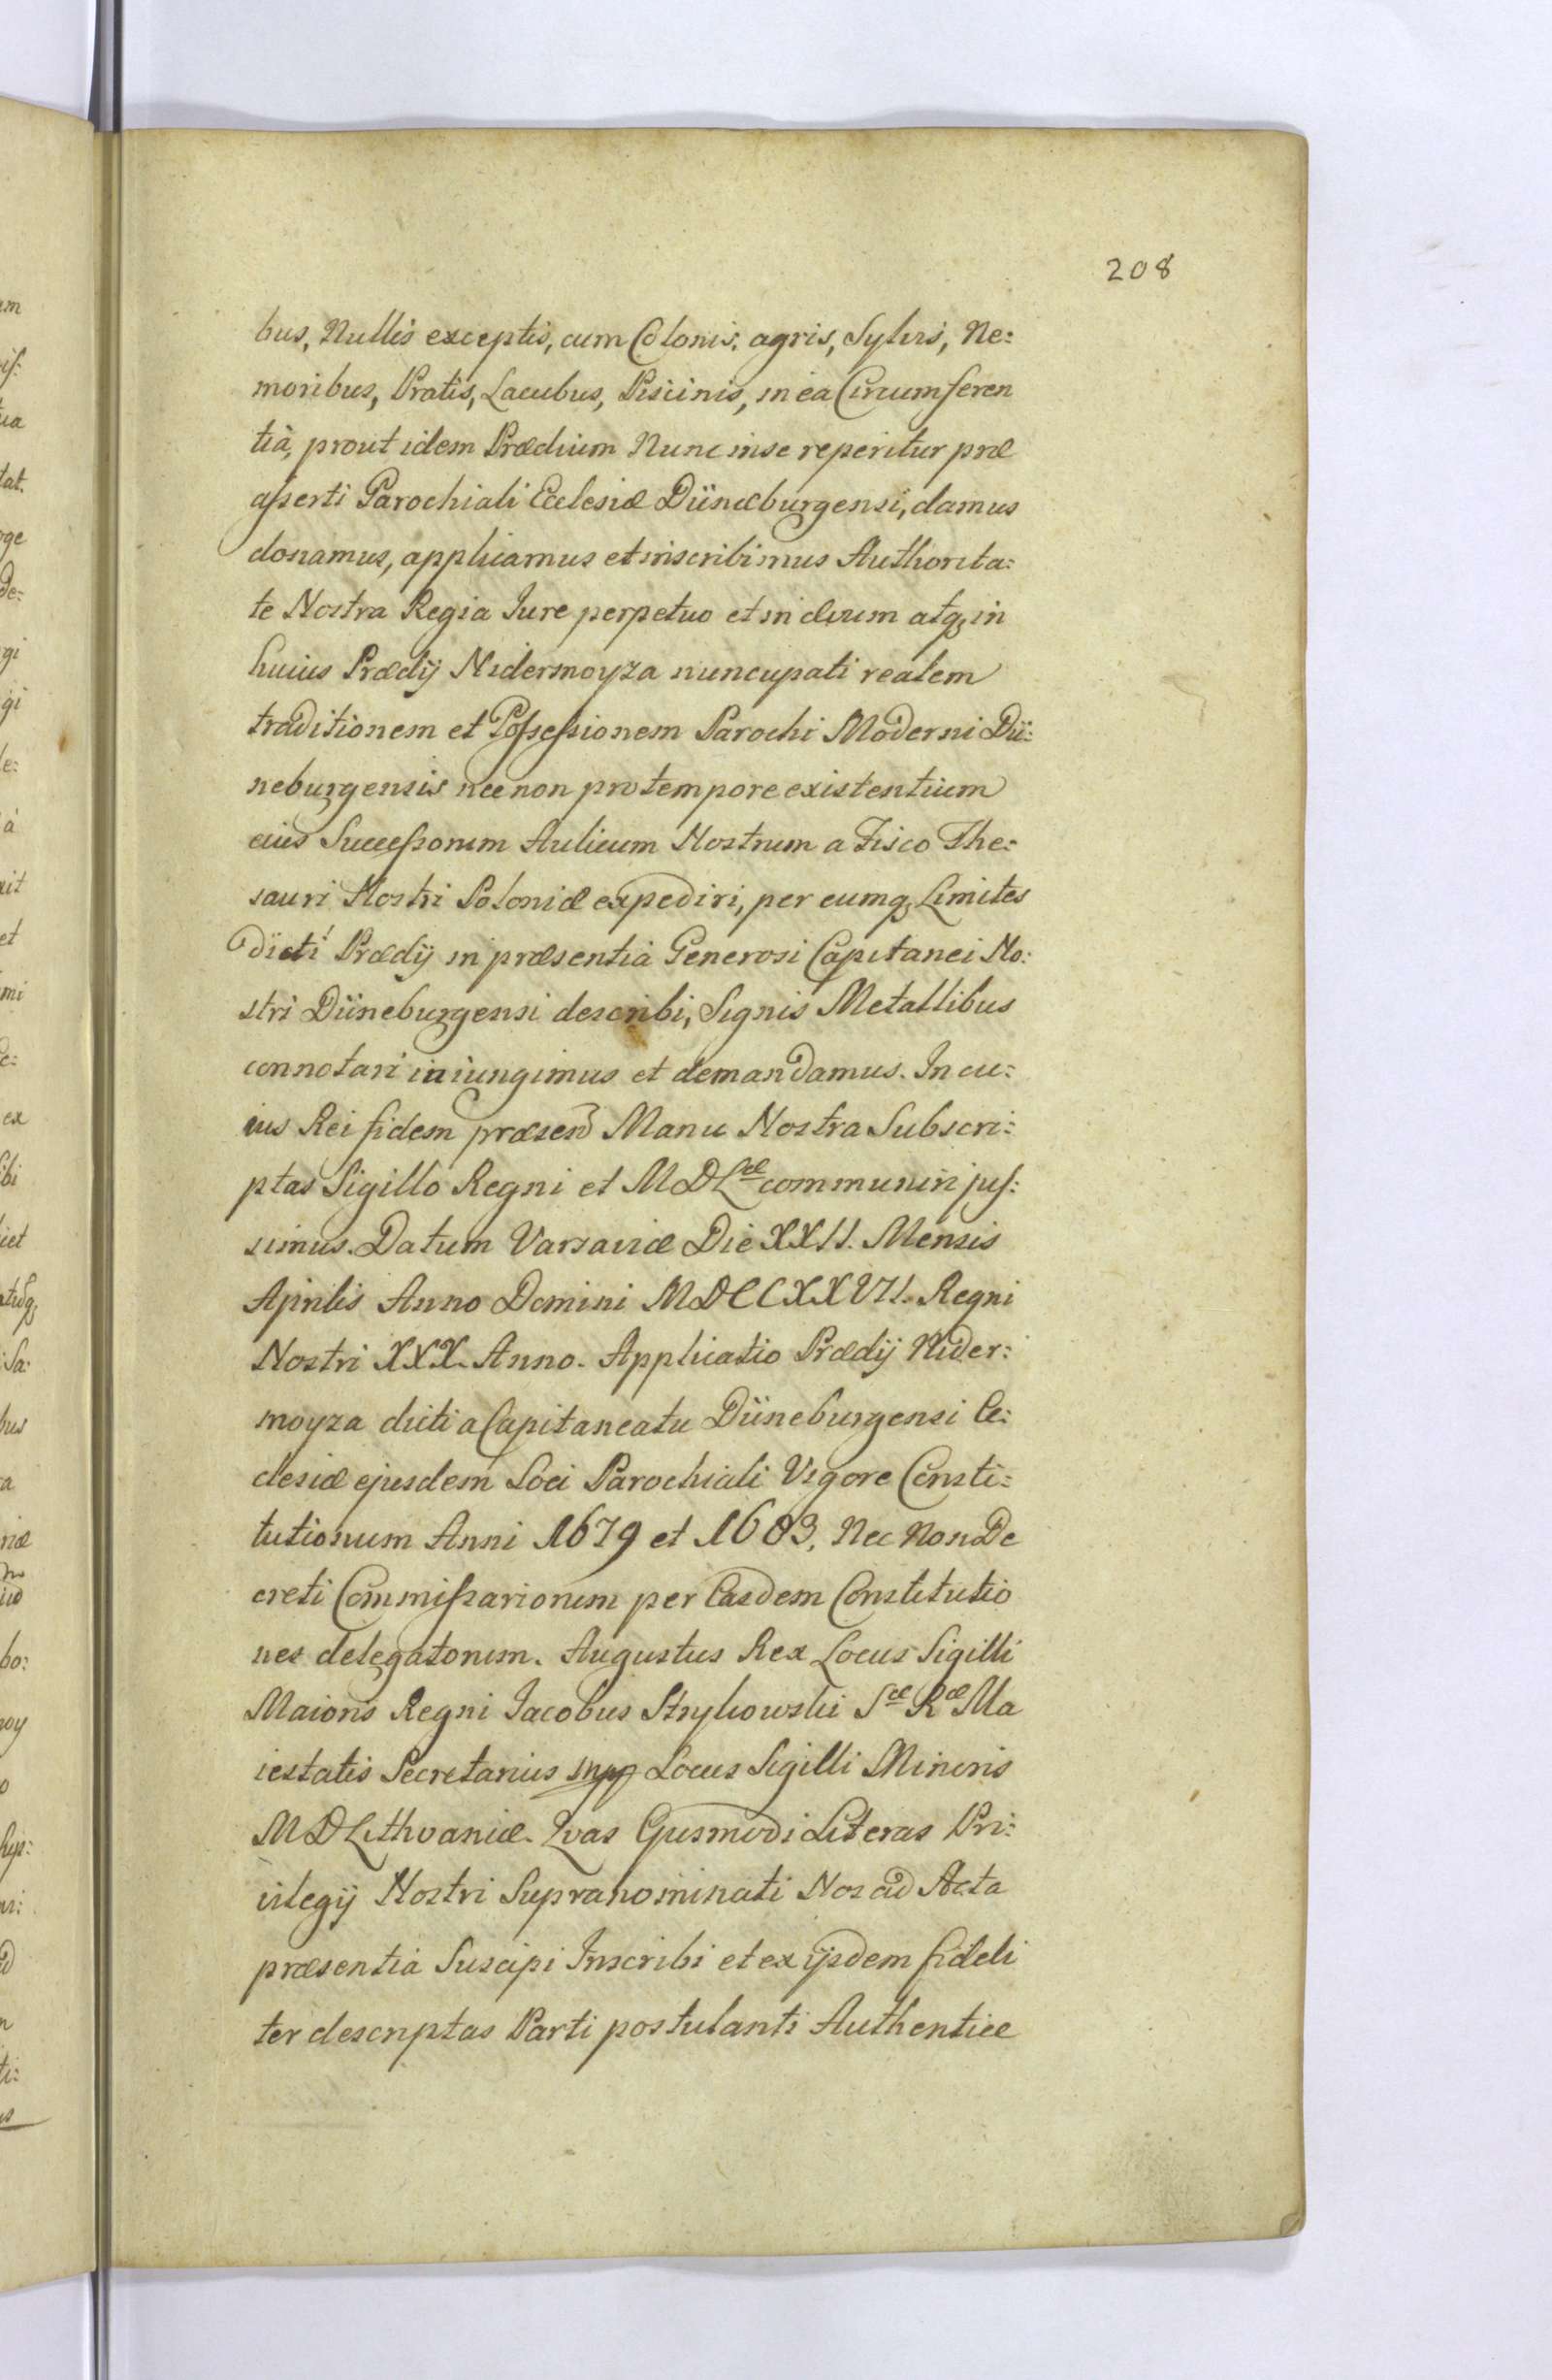 208
bus, Nullis exceptis, cum Colonis, agris, Sylvis, Ne:
moribus, Pratis, Lacubus, Piscinis, in ea Circumferen
tià, prout idem Prædium Nunc in se reperitur præ
asserti Parochiali Ecclesiæ Düneburgensi, damus
donamus, applicamus et inscribimus Authorita:
te Nostra Regia Iure perpetuo et in ævum atq in
huius Prædij Nidermoyza nuncupati realem
traditionem et Possessionem Parochi Moderni Dü:
neburgensis nec non pro tempore existentium
eius Successorum Aulicum Nostrum a Fisco The:
sauri Nostri Poloniæ expediri, per eumq Limites
dicti Prædij in præsentia Generosi Capitanei No:
stri Düneburgensi describi, Signis Metallibus
connotari iniungimus et demandamus. In cu:
ius Rei fidem præsend Manu Nostra Subscri:
ptas Sigillo Regni et M D Læ communiri jus:
simus. Datum Varsaviæ Die XXII. Mensis
Aprilis Anno Domini MDCCXXVII. Regni
Nostri XXX. Anno. Applicatio Prædij Nider:
moyza dicti a Capitaneatu Düneburgensi Ec:
clesiæ ejusdem Loci Parochiali Vigore Consti:
tutionum Anni 1679 et 1683. Nec Non De
creti Commissariorum per Easdem Constitutio
nes delegatorum. Augustus Rex Locus Sigilli
Maioris Regni Iacobus Strykowski Sæ Ræ Ma
iestatis Secretarius mpp Locus Sigilli Minoris
M D Lithvaniæ. Qvas Eiusmodi Literas Pri:
vilegij Nostri Supranominati Nos ad Acta
præsentia Suscipi Inscribi et ex ijsdem fideli
ter descriptas Parti postulanti Authentice